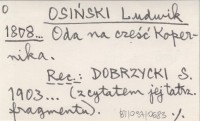 O
OSIŃSKI Ludwik
1808... Oda na cześć Koper-
nika.
Rec.: DOBRZYCKI S.
1903... (z cytatem jej tatrz.
fragmentu).
BT/09A/0685 ./.